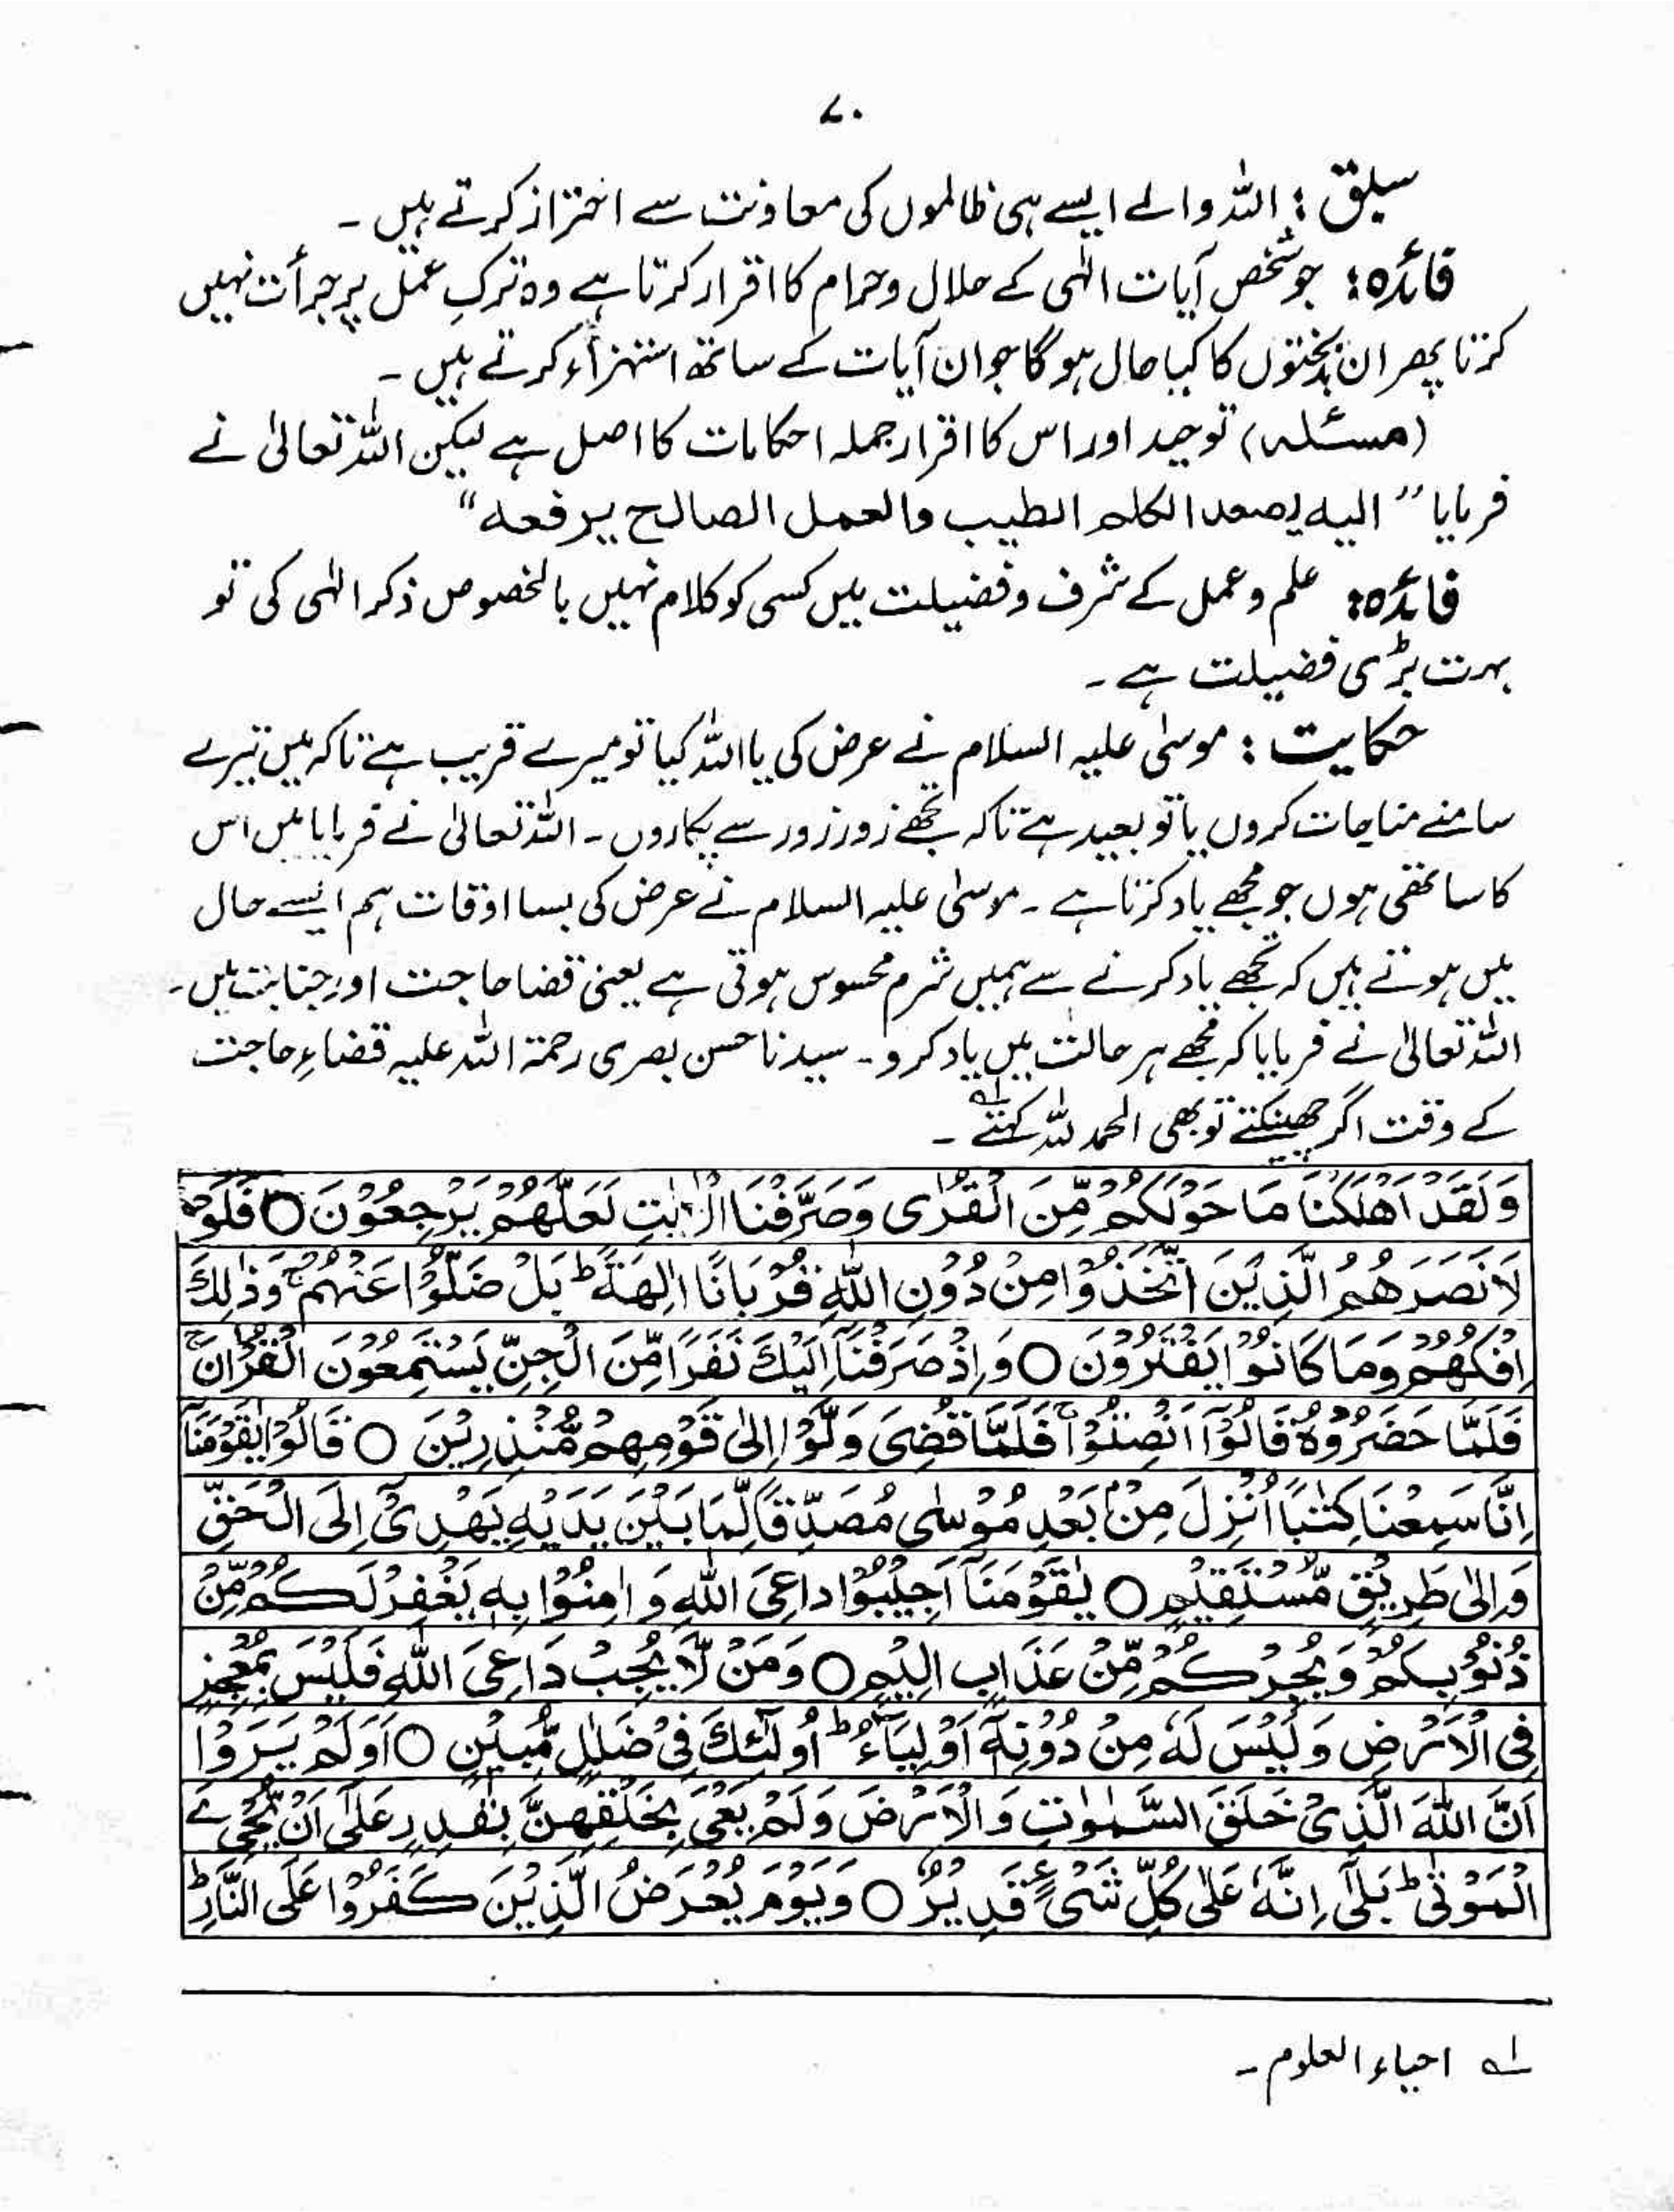 ۷۰
سبق : اللہ والے ایسے ہی ظالموں کی معاونت سے احتراز کرتے ہیں ۔
فائدہ : جو شخص آیات الٰہی کے حلال و حرام کا اقرار کرتا ہے وہ ترکِ عمل پر جرأت نہیں
کرتا پھر ان بدبختوں کا کیا حال ہو گا جو ان آیات کے ساتھ استہزاء کرتے ہیں ۔
(مسئلہ) توحید اور اس کا اقرار جملہ احکامات کا اصل ہے لیکن اللہ تعالیٰ نے
فرمایا ” الیہ یصعد الکلم الطیب والعمل الصالح یرفعہ “
فائدہ : علم و عمل کے شرف و فضیلت میں کسی کو کلام نہیں بالخصوص ذکر الٰہی کی تو
بہت بڑی فضیلت ہے ۔
حکایت : موسیٰ علیہ السلام نے عرض کی یا اللہ کیا تو میرے قریب ہے تاکہ میں تیرے
سامنے مناجات کروں یا تو بعید ہے تاکہ تجھے زور زور سے پکاروں ۔ اللہ تعالیٰ نے فرمایا میں اس
کا ساتھی ہوں جو مجھے یاد کرتا ہے ۔ موسیٰ علیہ السلام نے عرض کی بسا اوقات ہم ایسے حال
میں ہوتے ہیں کہ تجھے یاد کرنے سے ہمیں شرم محسوس ہوتی ہے یعنی قضا حاجت اور جنابت میں ۔
اللہ تعالیٰ نے فرمایا کہ مجھے ہر حالت میں یاد کرو ۔ سیدنا حسن بصری رحمۃ اللہ علیہ قضاءِ حاجت
کے وقت اگر چھینکتے تو بھی الحمد للہ کہتے ۱؎ ۔
وَلَقَدْ اَهْلَكْنَا مَا حَوْلَكُمْ مِّنَ الْقُرٰى وَصَرَّفْنَا الْاٰيٰتِ لَعَلَّهُمْ يَرْجِعُوْنَ ○ فَلَوْ
لَا نَصَرَهُمُ الَّذِيْنَ اتَّخَذُوْا مِنْ دُوْنِ اللّٰهِ قُرْبَانًا اٰلِهَةً ؕ بَلْ ضَلُّوْا عَنْهُمْ ۚ وَذٰلِكَ
اِفْكُهُمْ وَمَا كَانُوْا يَفْتَرُوْنَ ○ وَاِذْ صَرَفْنَآ اِلَيْكَ نَفَرًا مِّنَ الْجِنِّ يَسْتَمِعُوْنَ الْقُرْاٰنَ ۚ
فَلَمَّا حَضَرُوْهُ قَالُوْٓا اَنْصِتُوْا ۚ فَلَمَّا قُضِىَ وَلَّوْا اِلٰى قَوْمِهِمْ مُّنْذِرِيْنَ ○ قَالُوْا يٰقَوْمَنَآ
اِنَّا سَمِعْنَا كِتٰبًا اُنْزِلَ مِنْۢ بَعْدِ مُوْسٰى مُصَدِّقًا لِّمَا بَيْنَ يَدَيْهِ يَهْدِىْٓ اِلَى الْحَقِّ
وَاِلٰى طَرِيْقٍ مُّسْتَقِيْمٍ ○ يٰقَوْمَنَآ اَجِيْبُوْا دَاعِىَ اللّٰهِ وَاٰمِنُوْا بِهٖ يَغْفِرْ لَكُمْ مِّنْ
ذُنُوْبِكُمْ وَيُجِرْكُمْ مِّنْ عَذَابٍ اَلِيْمٍ ○ وَمَنْ لَّا يُجِبْ دَاعِىَ اللّٰهِ فَلَيْسَ بِمُعْجِزٍ
فِى الْاَرْضِ وَلَيْسَ لَهٗ مِنْ دُوْنِهٖٓ اَوْلِيَآءُ ؕ اُولٰٓئِكَ فِىْ ضَلٰلٍ مُّبِيْنٍ ○ اَوَلَمْ يَرَوْا
اَنَّ اللّٰهَ الَّذِىْ خَلَقَ السَّمٰوٰتِ وَالْاَرْضَ وَلَمْ يَعْىَ بِخَلْقِهِنَّ بِقٰدِرٍ عَلٰٓى اَنْ يُّحْيِۦَ
الْمَوْتٰى ؕ بَلٰٓى اِنَّهٗ عَلٰى كُلِّ شَىْءٍ قَدِيْرٌ ○ وَيَوْمَ يُعْرَضُ الَّذِيْنَ كَفَرُوْا عَلَى النَّارِ ؕ
۱؎ احیاء العلوم ۔